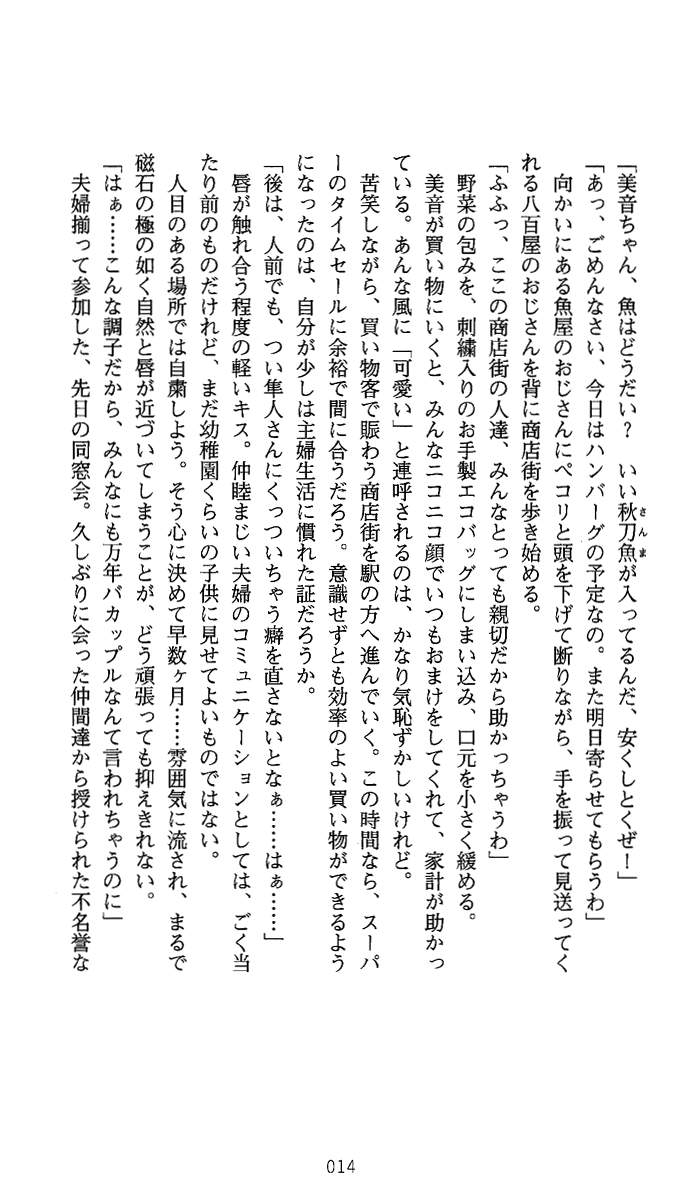 「美音ちゃん、魚はどうだい？　いい秋刀魚が入ってるんだ、安くしとくぜ！」
さんま
「あっ、ごめんなさい、今日はハンバーグの予定なの。また明日寄らせてもらうわ」
　向かいにある魚屋のおじさんにペコリと頭を下げて断りながら、手を振って見送ってく
れる八百屋のおじさんを背に商店街を歩き始める。
「ふふっ、ここの商店街の人達、みんなとっても親切だから助かっちゃうわ」
　野菜の包みを、刺繍入りのお手製エコバッグにしまい込み、口元を小さく緩める。
　美音が買い物にいくと、みんなニコニコ顔でいつもおまけをしてくれて、家計が助かっ
ている。あんな風に「可愛い」と連呼されるのは、かなり気恥ずかしいけれど。
　苦笑しながら、買い物客で賑わう商店街を駅の方へ進んでいく。この時間なら、スーパ
ーのタイムセールに余裕で間に合うだろう。意識せずとも効率のよい買い物ができるよう
になったのは、自分が少しは主婦生活に慣れた証だろうか。
「後は、人前でも、つい隼人さんにくっついちゃう癖を直さないとなぁ……はぁ……」
　唇が触れ合う程度の軽いキス。仲睦まじい夫婦のコミュニケーションとしては、ごく当
たり前のものだけれど、まだ幼稚園くらいの子供に見せてよいものではない。
　人目のある場所では自粛しよう。そう心に決めて早数ヶ月……雰囲気に流され、まるで
磁石の極の如く自然と唇が近づいてしまうことが、どう頑張っても抑えきれない。
「はぁ……こんな調子だから、みんなにも万年バカップルなんて言われちゃうのに」
　夫婦揃って参加した、先日の同窓会。久しぶりに会った仲間達から授けられた不名誉な
014